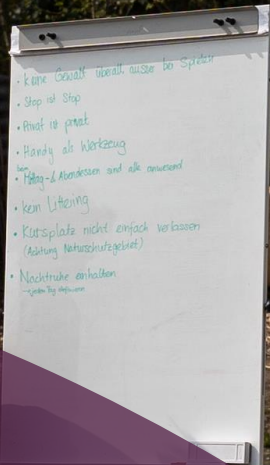 · keine Gewalt überall ausser bei Spielen
· Stop ist Stop
· Privat ist privat
· Handy als Werkzeug
beim
· Mittag- & Abendessen sind alle anwesend
· kein Littering
· Kursplatz nicht einfach verlassen
(Achtung Naturschutzgebiet)
· Nachtruhe einhalten